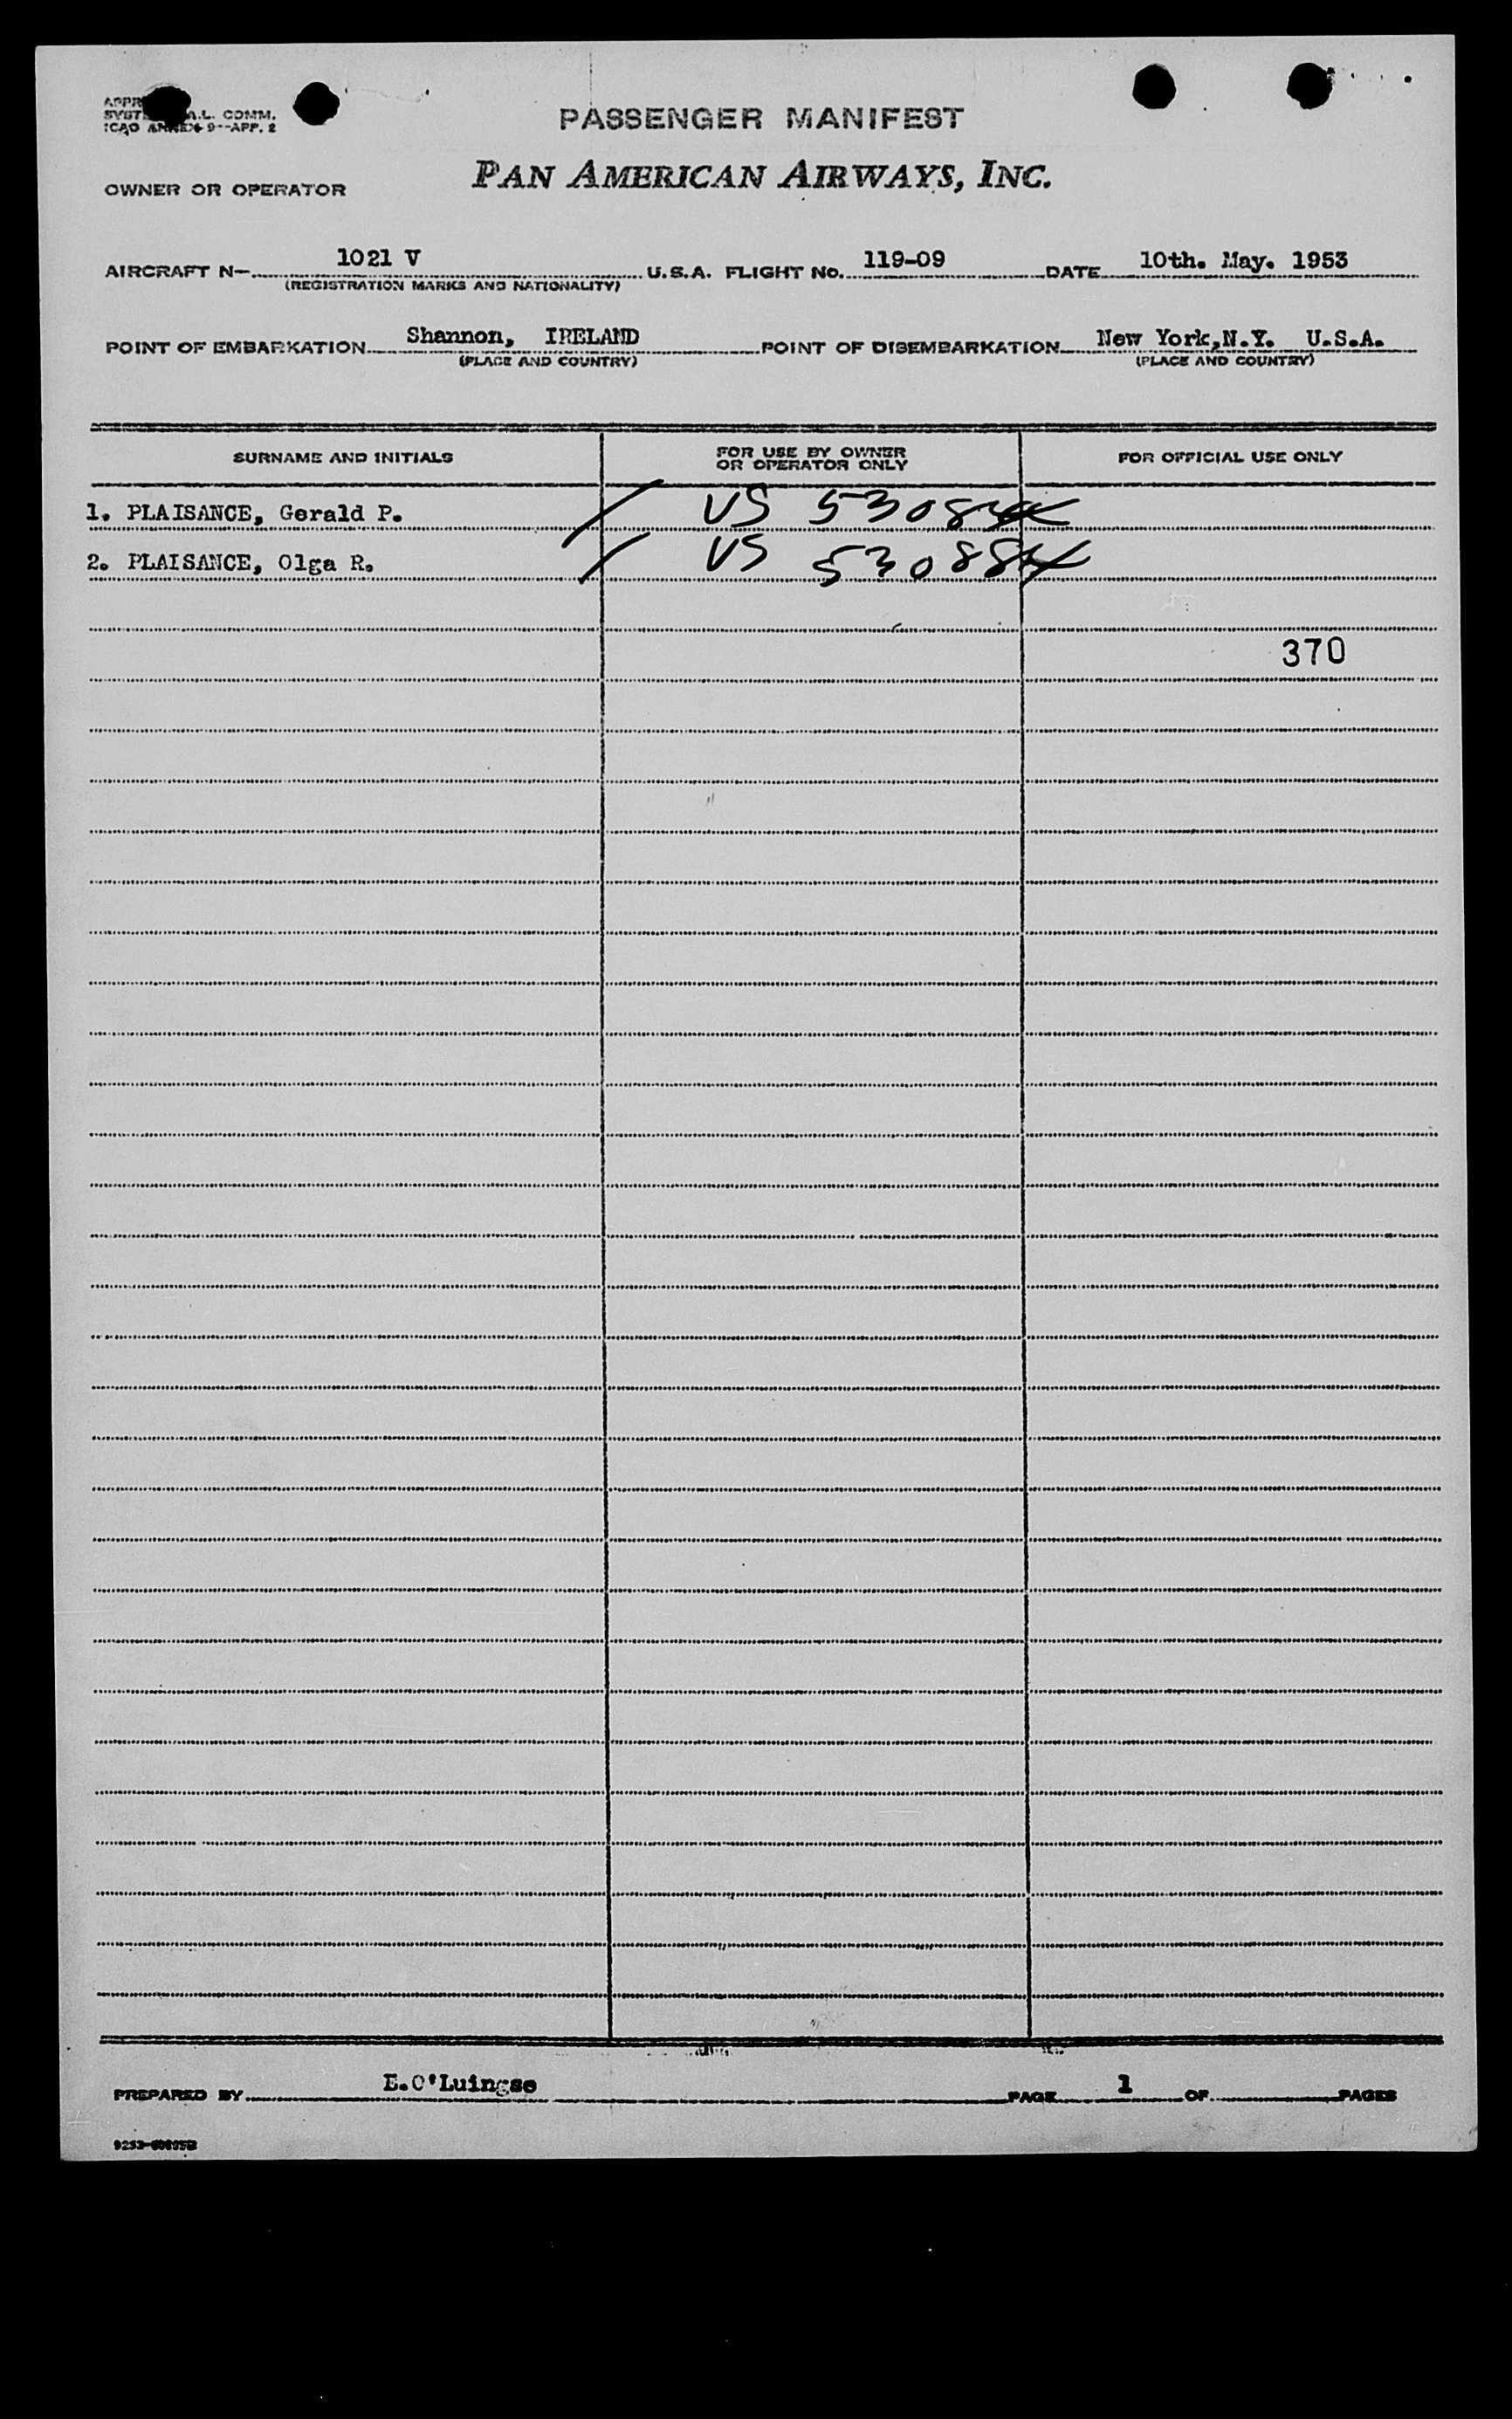 PASSENGER MANIFEST
A.L. COMM.
ICAO ANNEX 9--APP. 2
PAN AMERICAN AIRWAYS, INC.
OWNER OR OPERATOR
AIRCRAFT N- 1021 V U.S.A. FLIGHT NO. 119-09 DATE 10th. May. 1953
(REGISTRATION MARKS AND NATIONALITY)
POINT OF EMBARKATION Shannon, IRELAND POINT OF DISEMBARKATION New York,N.Y. U.S.A.
(PLACE AND COUNTRY) (PLACE AND COUNTRY)
SURNAME AND INITIALS FOR USE BY OWNER OR OPERATOR ONLY FOR OFFICIAL USE ONLY
1. PLAISANCE, Gerald P. US
2. PLAISANCE, Olga R. US
370
PREPARED BY E.O'Luingse PAGE 1 OF PAGES